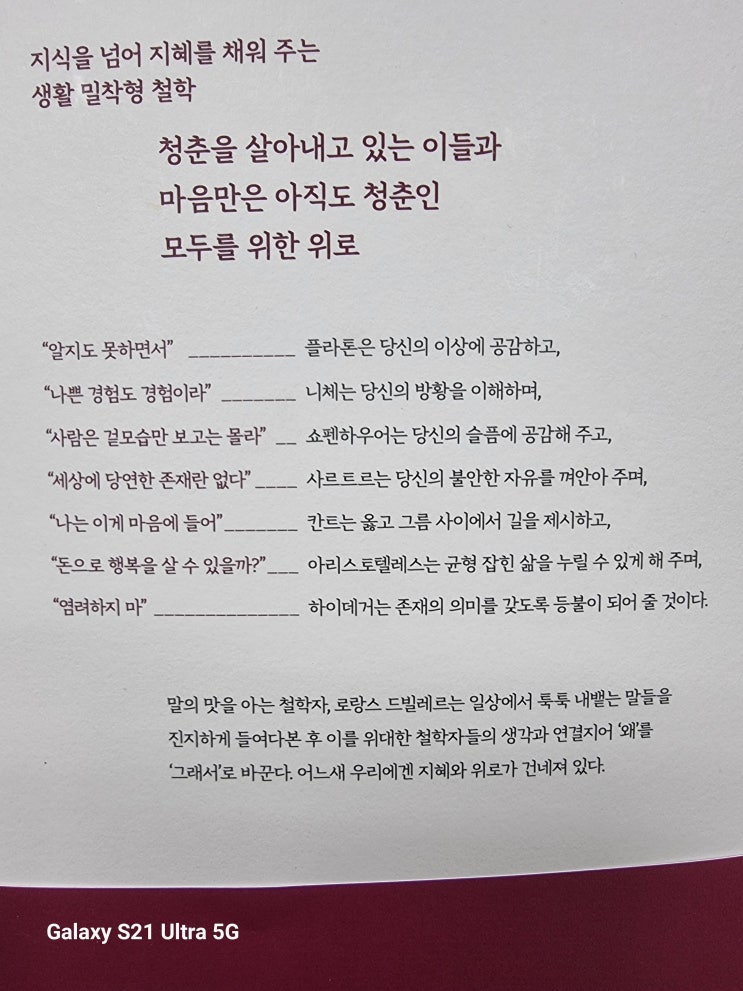 지식을 넘어 지혜를 채워 주는
생활 밀착형 철학
청춘을 살아내고 있는 이들과
마음만은 아직도 청춘인
모두를 위한 위로
“알지도 못하면서” __________ 플라톤은 당신의 이상에 공감하고,
“나쁜 경험도 경험이라” _______ 니체는 당신의 방황을 이해하며,
“사람은 겉모습만 보고는 몰라” __ 쇼펜하우어는 당신의 슬픔에 공감해 주고,
“세상에 당연한 존재란 없다” ____ 사르트르는 당신의 불안한 자유를 껴안아 주며,
“나는 이게 마음에 들어” _______ 칸트는 옳고 그름 사이에서 길을 제시하고,
“돈으로 행복을 살 수 있을까?” ___ 아리스토텔레스는 균형 잡힌 삶을 누릴 수 있게 해 주며,
“염려하지 마” ______________ 하이데거는 존재의 의미를 갖도록 등불이 되어 줄 것이다.
말의 맛을 아는 철학자, 로랑스 드빌레르는 일상에서 툭툭 내뱉는 말들을
진지하게 들여다본 후 이를 위대한 철학자들의 생각과 연결지어 ‘왜’를
‘그래서’로 바꾼다. 어느새 우리에겐 지혜와 위로가 건네져 있다.
Galaxy S21 Ultra 5G